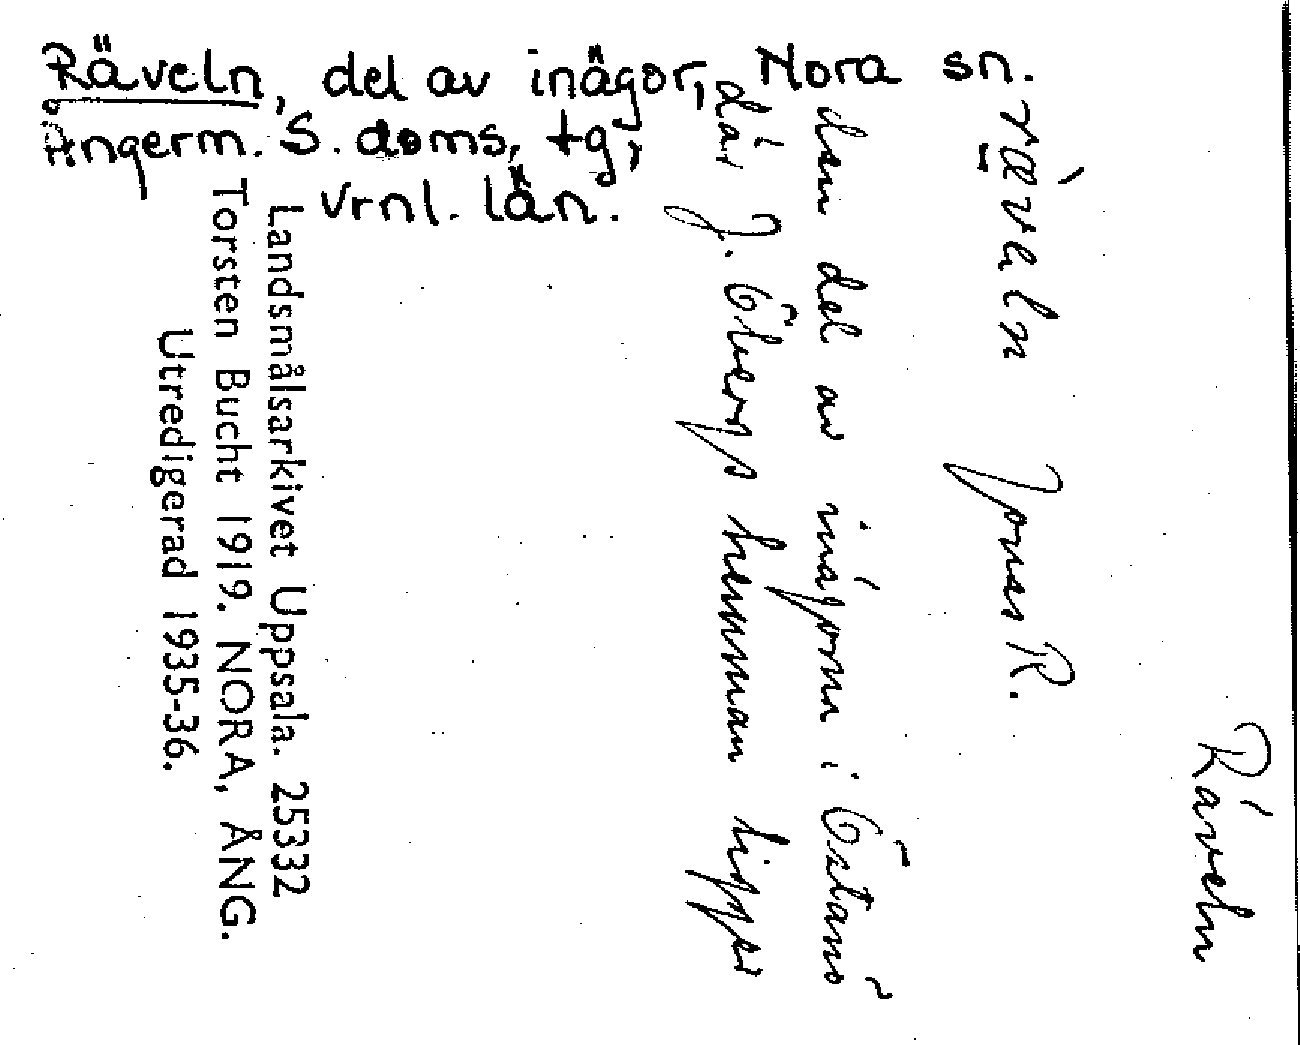 Räveln, del av inägor, Nora sn.
Ångerm. S. doms, tg,
Vrnl. län.
Räveln
ræ̀veln Jonas R.
den del av inägorna i Östanö
där J. Öbergs hemman ligger
Landsmålsarkivet Uppsala. 25332
Torsten Bucht 1919. NORA, ÅNG.
Utredigerad 1935-36.